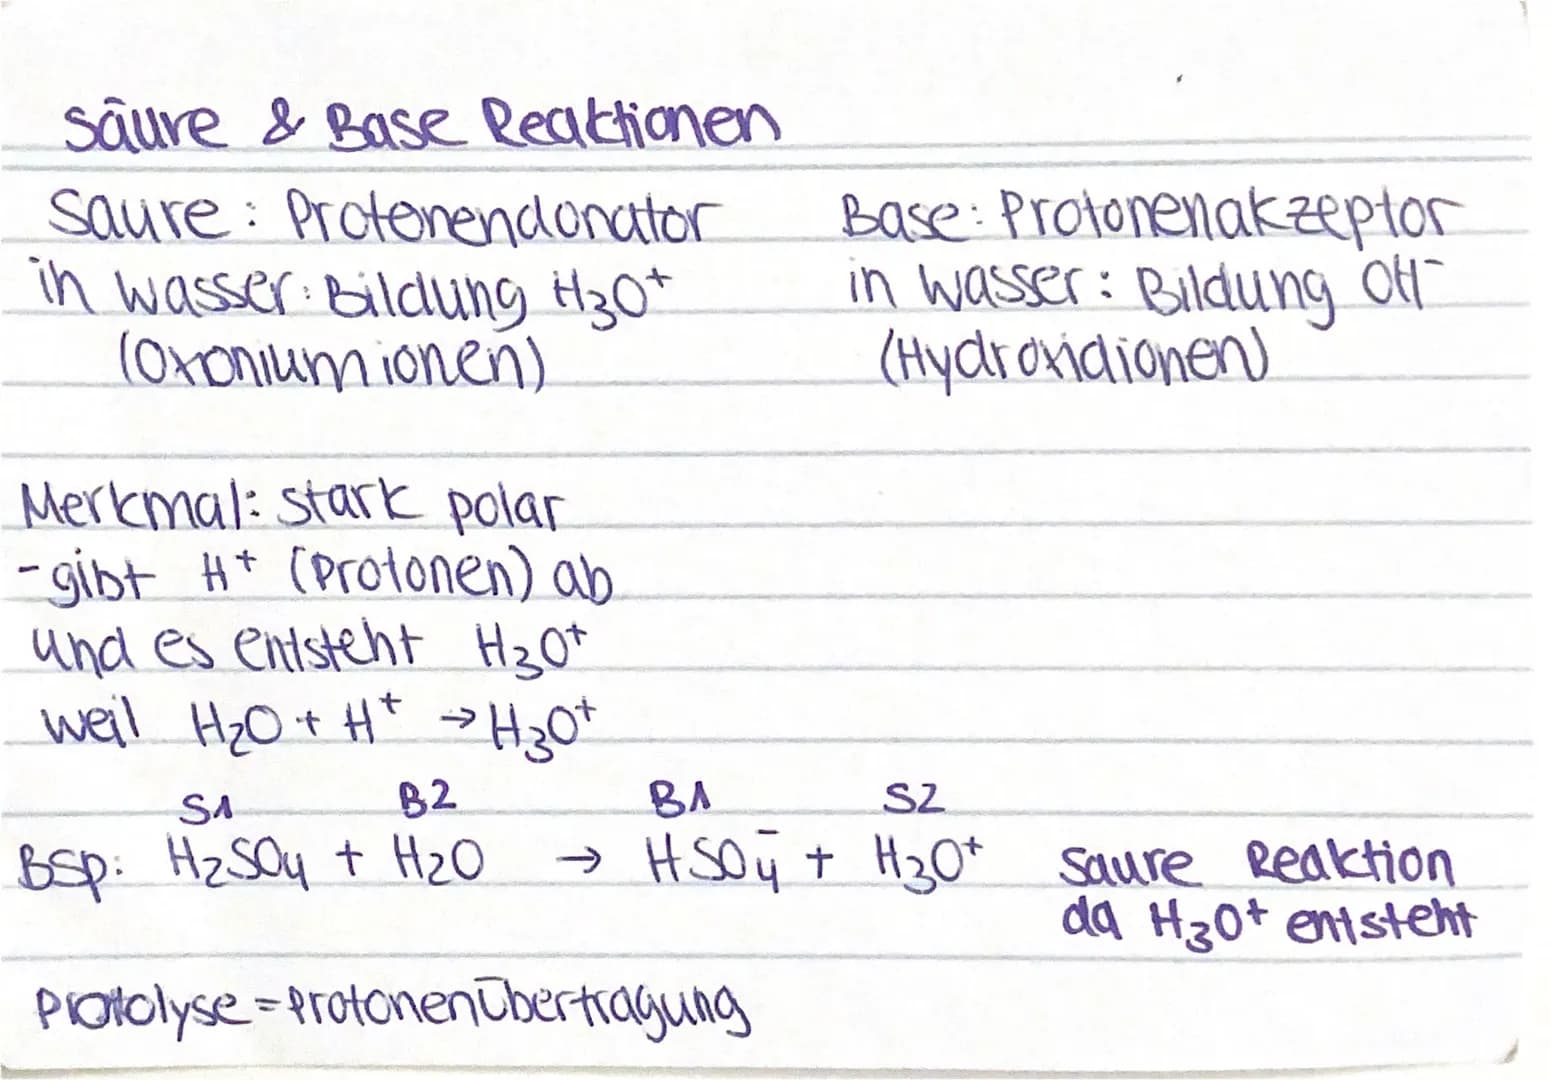 Säure & Base Reaktionen
Säure: Protonendonator
in Wasser: Bildung H₃O⁺
(Oxoniumionen)
Base: Protonenakzeptor
in Wasser: Bildung OH⁻
(Hydroxidionen)
Merkmal: stark polar
-gibt H⁺ (Protonen) ab
und es entsteht H₃O⁺
weil H₂O + H⁺ → H₃O⁺
S1 B2 B1 S2
BSP: H₂SO₄ + H₂O → HSO₄⁻ + H₃O⁺
saure Reaktion
da H₃O⁺ entsteht
Protolyse = Protonenübertragung